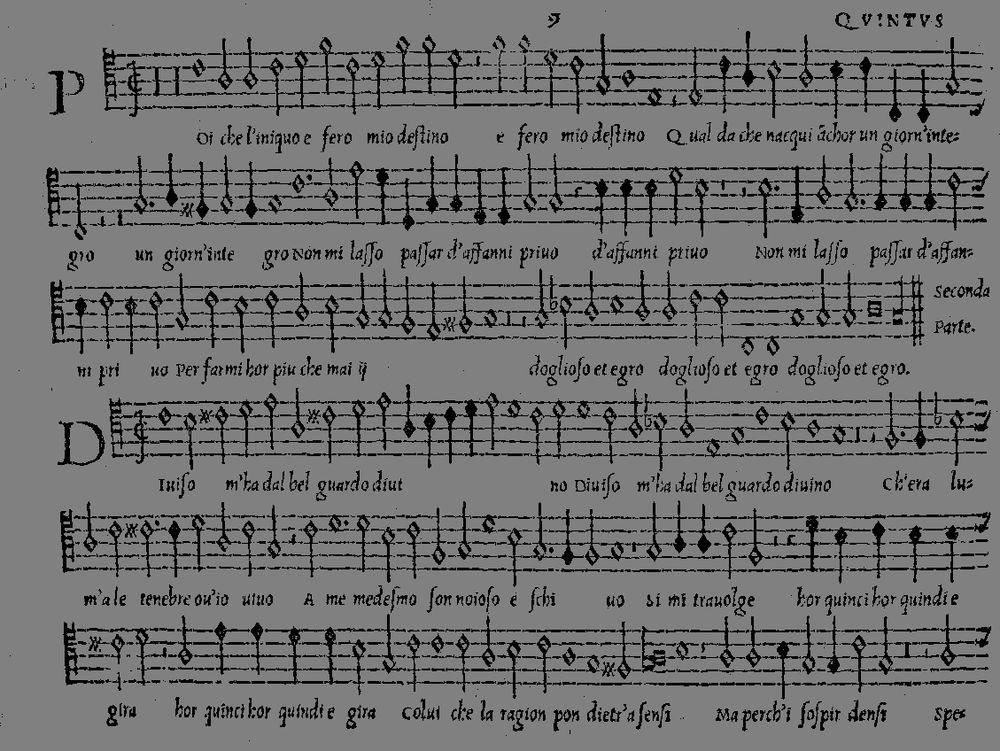 9 QVINTVS
POi che l'iniquo e fero mio destino e fero mio destino Qual da che nacqui āchor un giorn'inte-
gro un giorn'inte gro Non mi lasso passar d'affanni priuo d'affanni priuo Non mi lasso passar d'affan-
ni pri uo Per farmi hor piu che mai ij doglioso et egro doglioso et egro doglioso et egro. Seconda Parte.
DIuiso m'ha dal bel guardo diui no Diuiso m'ha dal bel guardo diuino Ch'era lu-
m'a le tenebre ou'io uiuo A me medesmo son noioso e schi uo Si mi trauolge hor quinci hor quindi e
gira hor quinci hor quindi e gira Colui che la ragion pon dietr'a sensi Ma perch'i sospir densi Spes-